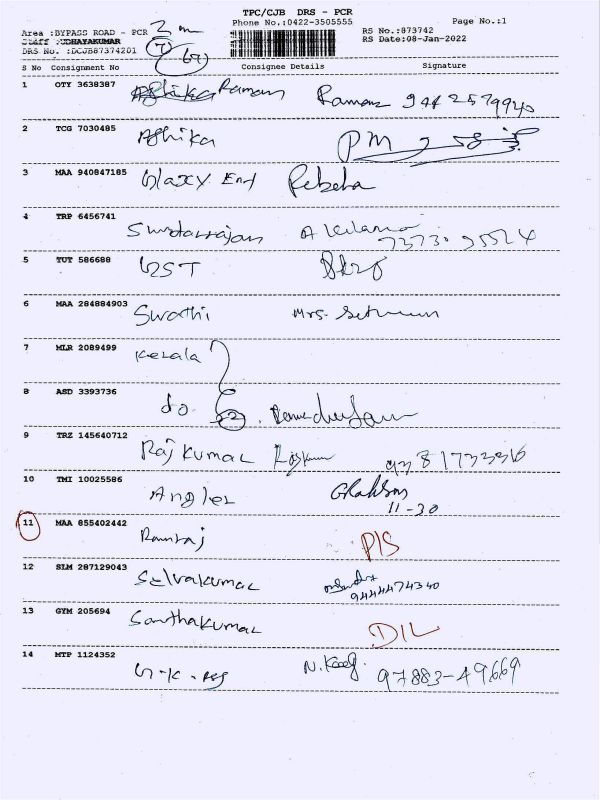 TPC/CJB DRS - PCR
Area :BYPASS ROAD - PCR Phone No.:0422-3505555 Page No.:1
Staff :UDHAYAKUMAR RS No.:873742
DRS No. :DCJB87374201 RS Date:08-Jan-2022
S No Consignment No Consignee Details Signature
1 OTY 3638387 Ashika Raman Raman 9442579940
2 TCG 7030485 Ashika PM
3 MAA 940847185 Glaxy Ent Rebeha
4 TRP 6456741 Sundarrajan
5 TUT 586688 GST
6 MAA 284884903 Swathi Mrs.
7 MLR 2089499 Kerala
8 ASD 3393736 do
9 TRZ 145640712 Raj Kumar Rajkumar 9381733316
10 TMI 10025586 Angler
11-30
11 MAA 855402442 Ramraj PIS
12 SLM 287129043 Selvakumar
9444474340
13 GYM 205694 Santhakumar DIL
14 MTP 1124352 97883-49669